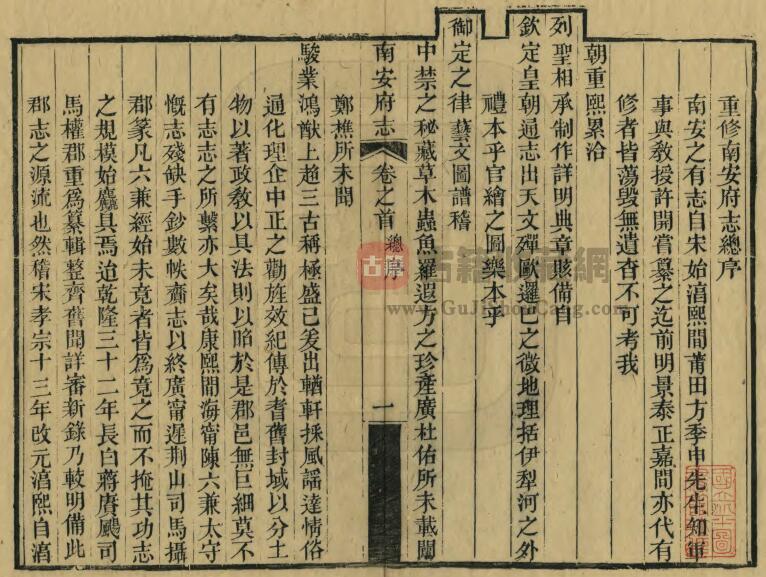 重修南安府志總序
南安之有志自宋始湻熙間莆田方季申先生知軍
事與教授許開嘗纂之迄前明景泰正嘉間亦代有
修者皆蕩毀無遺杳不可考我
朝重熙累洽
列聖相承制作詳明典章賅備自
欽定皇朝通志出天文殫歐邏巴之徵地理括伊犁河之外
禮本乎官繪之圖樂本乎
御定之律藝文圖譜稽
中禁之秘藏草木蟲魚羅遐方之珍產廣杜佑所未載闡
南安府志 卷之首 總序 一
鄭樵所未聞
駿業鴻猷上超三古稱極盛已爰出輶軒採風謡達情俗
通化理企中正之勸旌效紀傳於耆舊封域以分土
物以著政敎以具法則以昭於是郡邑無巨細莫不
有志志之所繫亦大矣哉康熙間海甯陳六兼太守
慨志殘缺手鈔數帙齎志以終廣甯遲荆山司馬攝
郡篆凡六兼經始未竟者皆爲竟之而不掩其功志
之規模始麤具焉迨乾隆三十二年長白蔣賡颺司
馬權郡重爲纂輯整齊舊聞詳審新錄乃較明備此
郡志之源流也然稽宋孝宗十三年改元湻熙自湻
古籍收藏網
www.GuJiShouCang.com